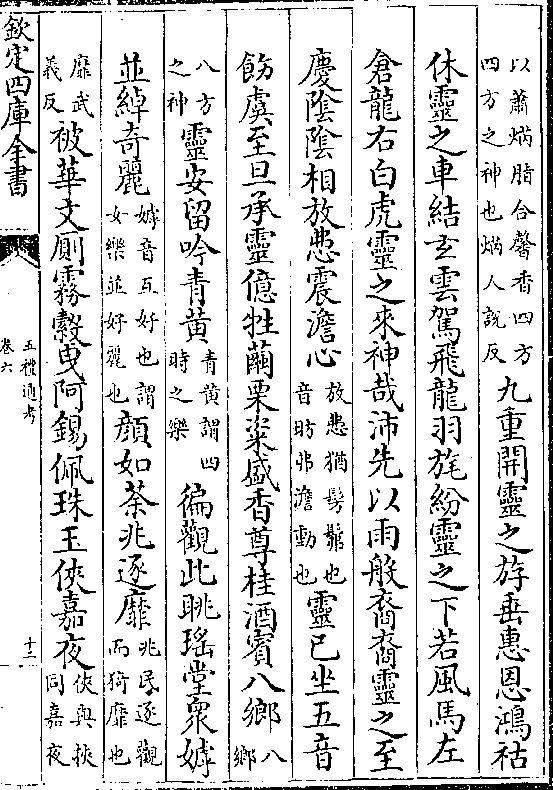 以蕭焫脂合馨香四方
四方之神也焫人說反
九重開靈之斿垂惠恩鴻祜
休靈之車結玄雲駕飛龍羽旄紛靈之下若風馬左
倉龍右白虎靈之來神哉沛先以雨般裔裔靈之至
慶陰陰相放㤵震澹心
放㤵猶髣髴也
音昉弗澹動也
靈已坐五音
飭虞至旦承靈億牲繭栗粢盛香尊桂酒賓八鄉
八鄉
八方
之神
靈安留吟青黃
青黃謂四
時之樂
徧觀此眺瑤堂衆嫭
並綽奇麗
嫭音互好也謂
女樂並好麗也
顔如荼兆逐靡
兆民逐觀
而猗靡也
靡武
義反
被華文厠霧縠曵阿錫佩珠玉俠嘉夜
俠與挾
同嘉夜
欽定四庫全書
五禮通考
卷六
十三